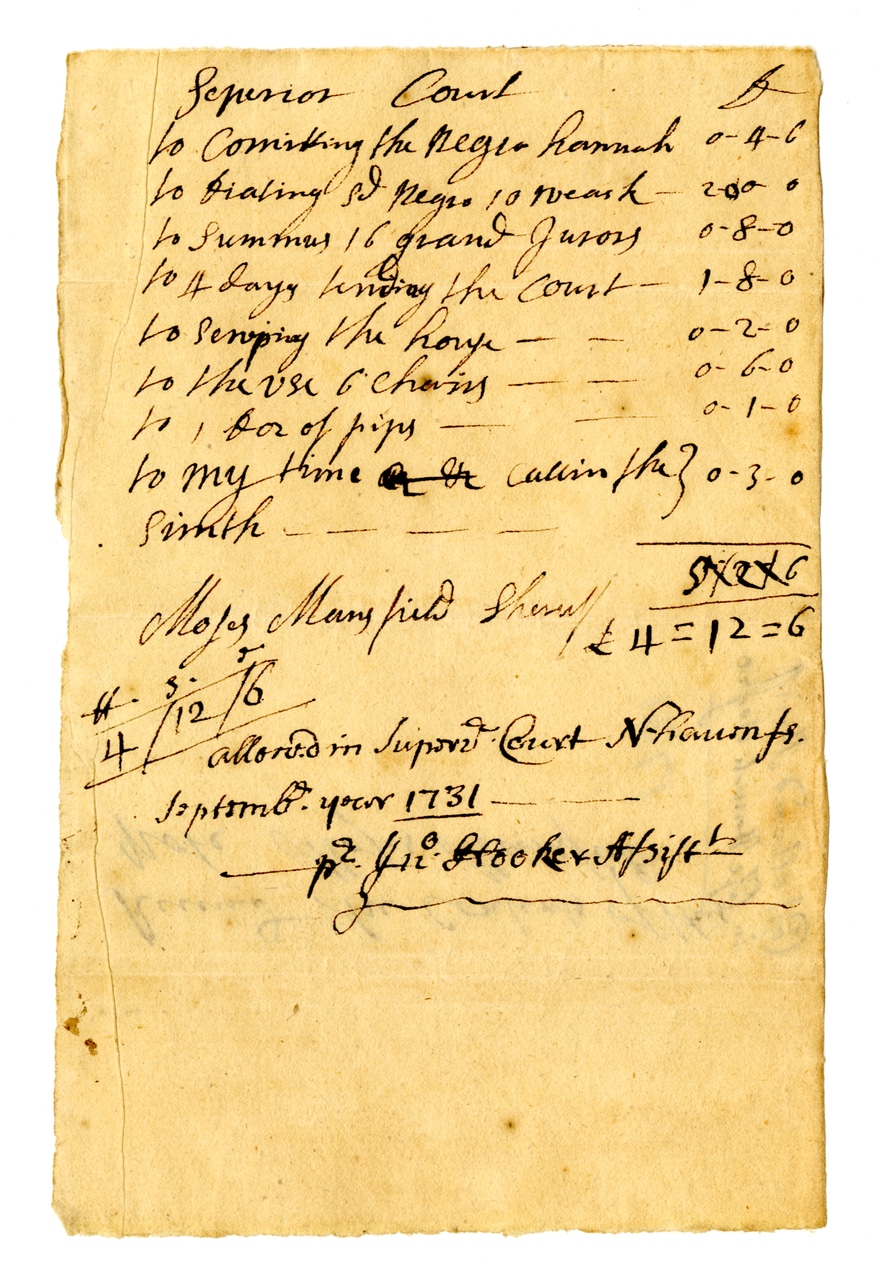 Seperior Court
to Comitting the Negro hannah 0-4-6
to diating sd Negro 10 weack - 2-00-0
to Summus 16 grand Jurors 0-8-0
to 4 days tending the Court - 1-8-0
to Sweping the house - - 0-2-0
to the vse 6 Cheirs - - 0-6-0
to 1 doz of pips - - 0-1-0
to my time Callin the } 0-3-0
Simth - - - -
5/2/6
Moses Mansfield Sheriff
£ 4=12=6
tt. s. d
4/12/6
allowd in Superr. Court N-hauen ss.
Septembr. year 1731 -
pr. Jno. Hooker Assistt